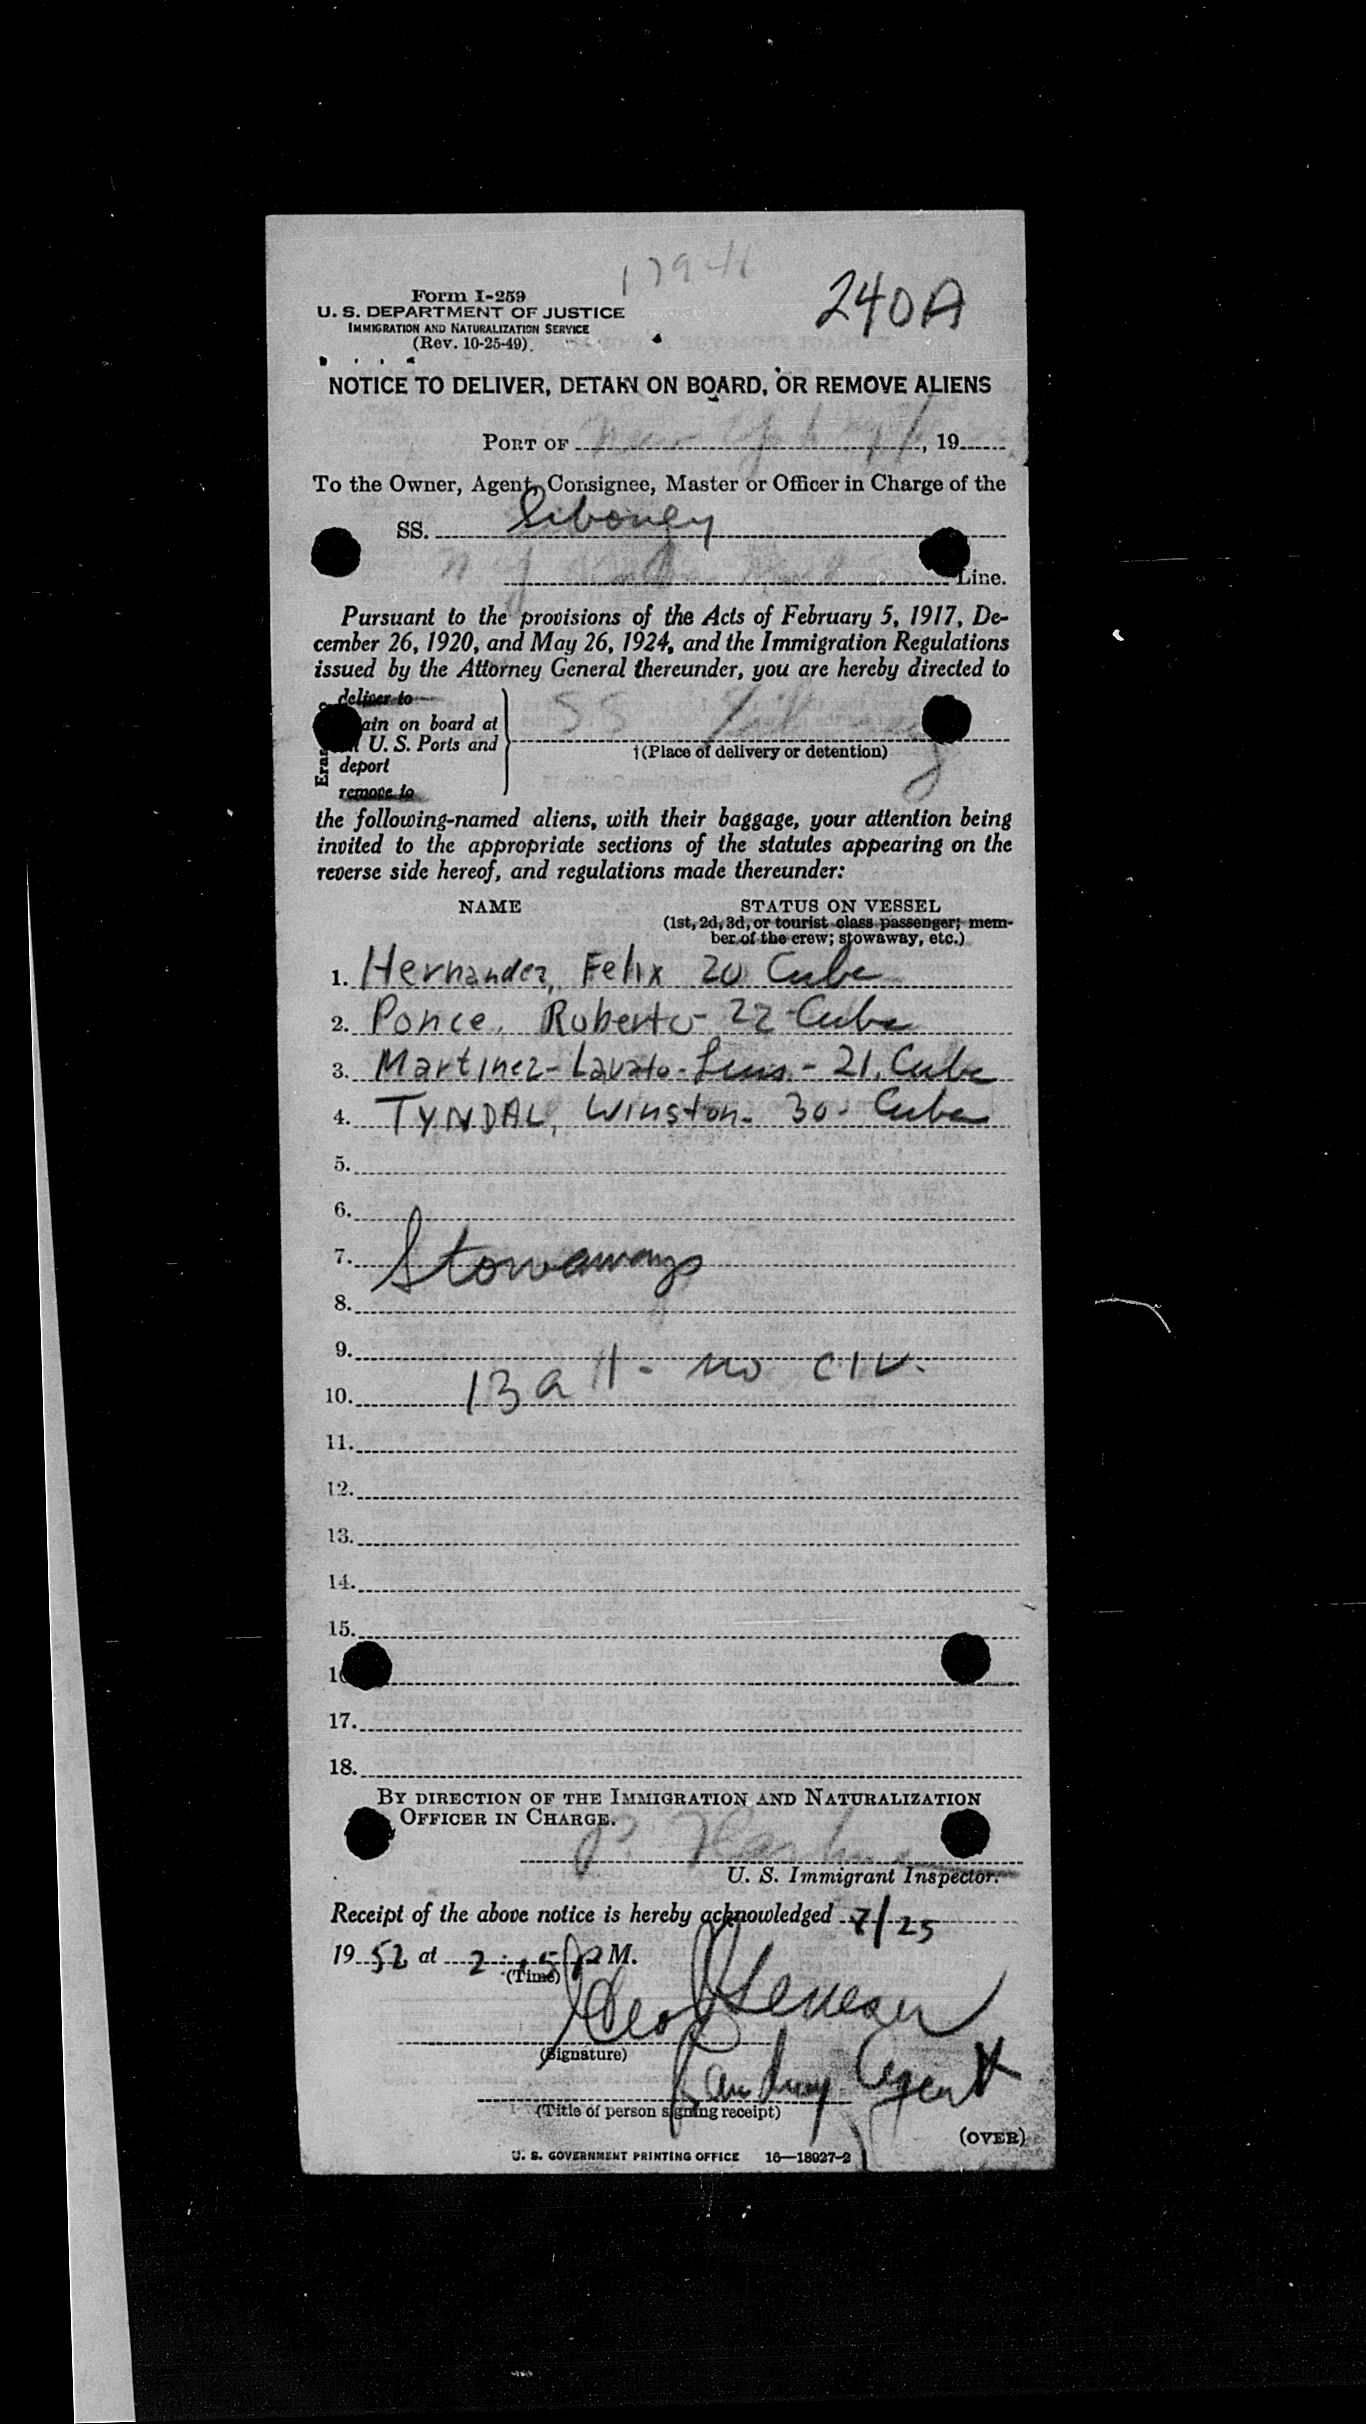 179-11
240A
Form I-259
U. S. DEPARTMENT OF JUSTICE
IMMIGRATION AND NATURALIZATION SERVICE
(Rev. 10-25-49)
NOTICE TO DELIVER, DETAIN ON BOARD, OR REMOVE ALIENS
PORT OF New York, 19
To the Owner, Agent, Consignee, Master or Officer in Charge of the
SS. Siboney
N Y Line.
Pursuant to the provisions of the Acts of February 5, 1917, De-
cember 26, 1920, and May 26, 1924, and the Immigration Regulations
issued by the Attorney General thereunder, you are hereby directed to
deliver to
ain on board at SS Siboney
U. S. Ports and
†(Place of delivery or detention)
deport
remove to
the following-named aliens, with their baggage, your attention being
invited to the appropriate sections of the statutes appearing on the
reverse side hereof, and regulations made thereunder:
NAME STATUS ON VESSEL
(1st, 2d, 3d, or tourist class passenger; mem-
ber of the crew; stowaway, etc.)
1. Hernandez, Felix 20 Cuba
2. Ponce, Roberto - 22 - Cuba
3. Martinez - Lavato - Luis - 21. Cuba
4. TYNDAL, Winston - 30 - Cuba
5.
6.
7. Stowaways
8.
9.
10. 13 a 11 - no C I V.
11.
12.
13.
14.
15.
16
17.
18.
BY DIRECTION OF THE IMMIGRATION AND NATURALIZATION
OFFICER IN CHARGE.
P.
U. S. Immigrant Inspector.
Receipt of the above notice is hereby acknowledged 7/25
1952 at 2:15 P M.
(Time)
Geo
(Signature)
Agent
(Title of person signing receipt)
(OVER)
U. S. GOVERNMENT PRINTING OFFICE 16—18927-2